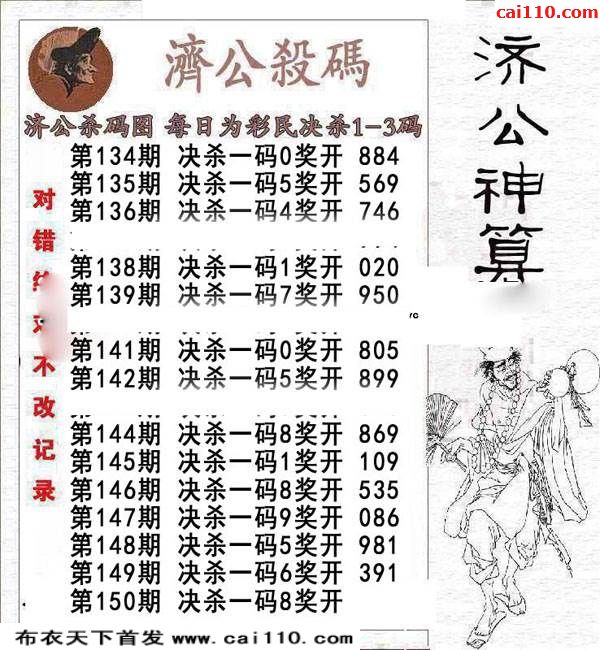 cai110.com
濟公殺碼
济公神算
济公杀码图 每日为彩民决杀1-3码
第134期 决杀一码0奖开 884
第135期 决杀一码5奖开 569
第136期 决杀一码4奖开 746
第138期 决杀一码1奖开 020
第139期 决杀一码7奖开 950
第141期 决杀一码0奖开 805
第142期 决杀一码5奖开 899
第144期 决杀一码8奖开 869
第145期 决杀一码1奖开 109
第146期 决杀一码8奖开 535
第147期 决杀一码9奖开 086
第148期 决杀一码5奖开 981
第149期 决杀一码6奖开 391
第150期 决杀一码8奖开
对错
不改记录
布衣天下首发 www.cai110.com